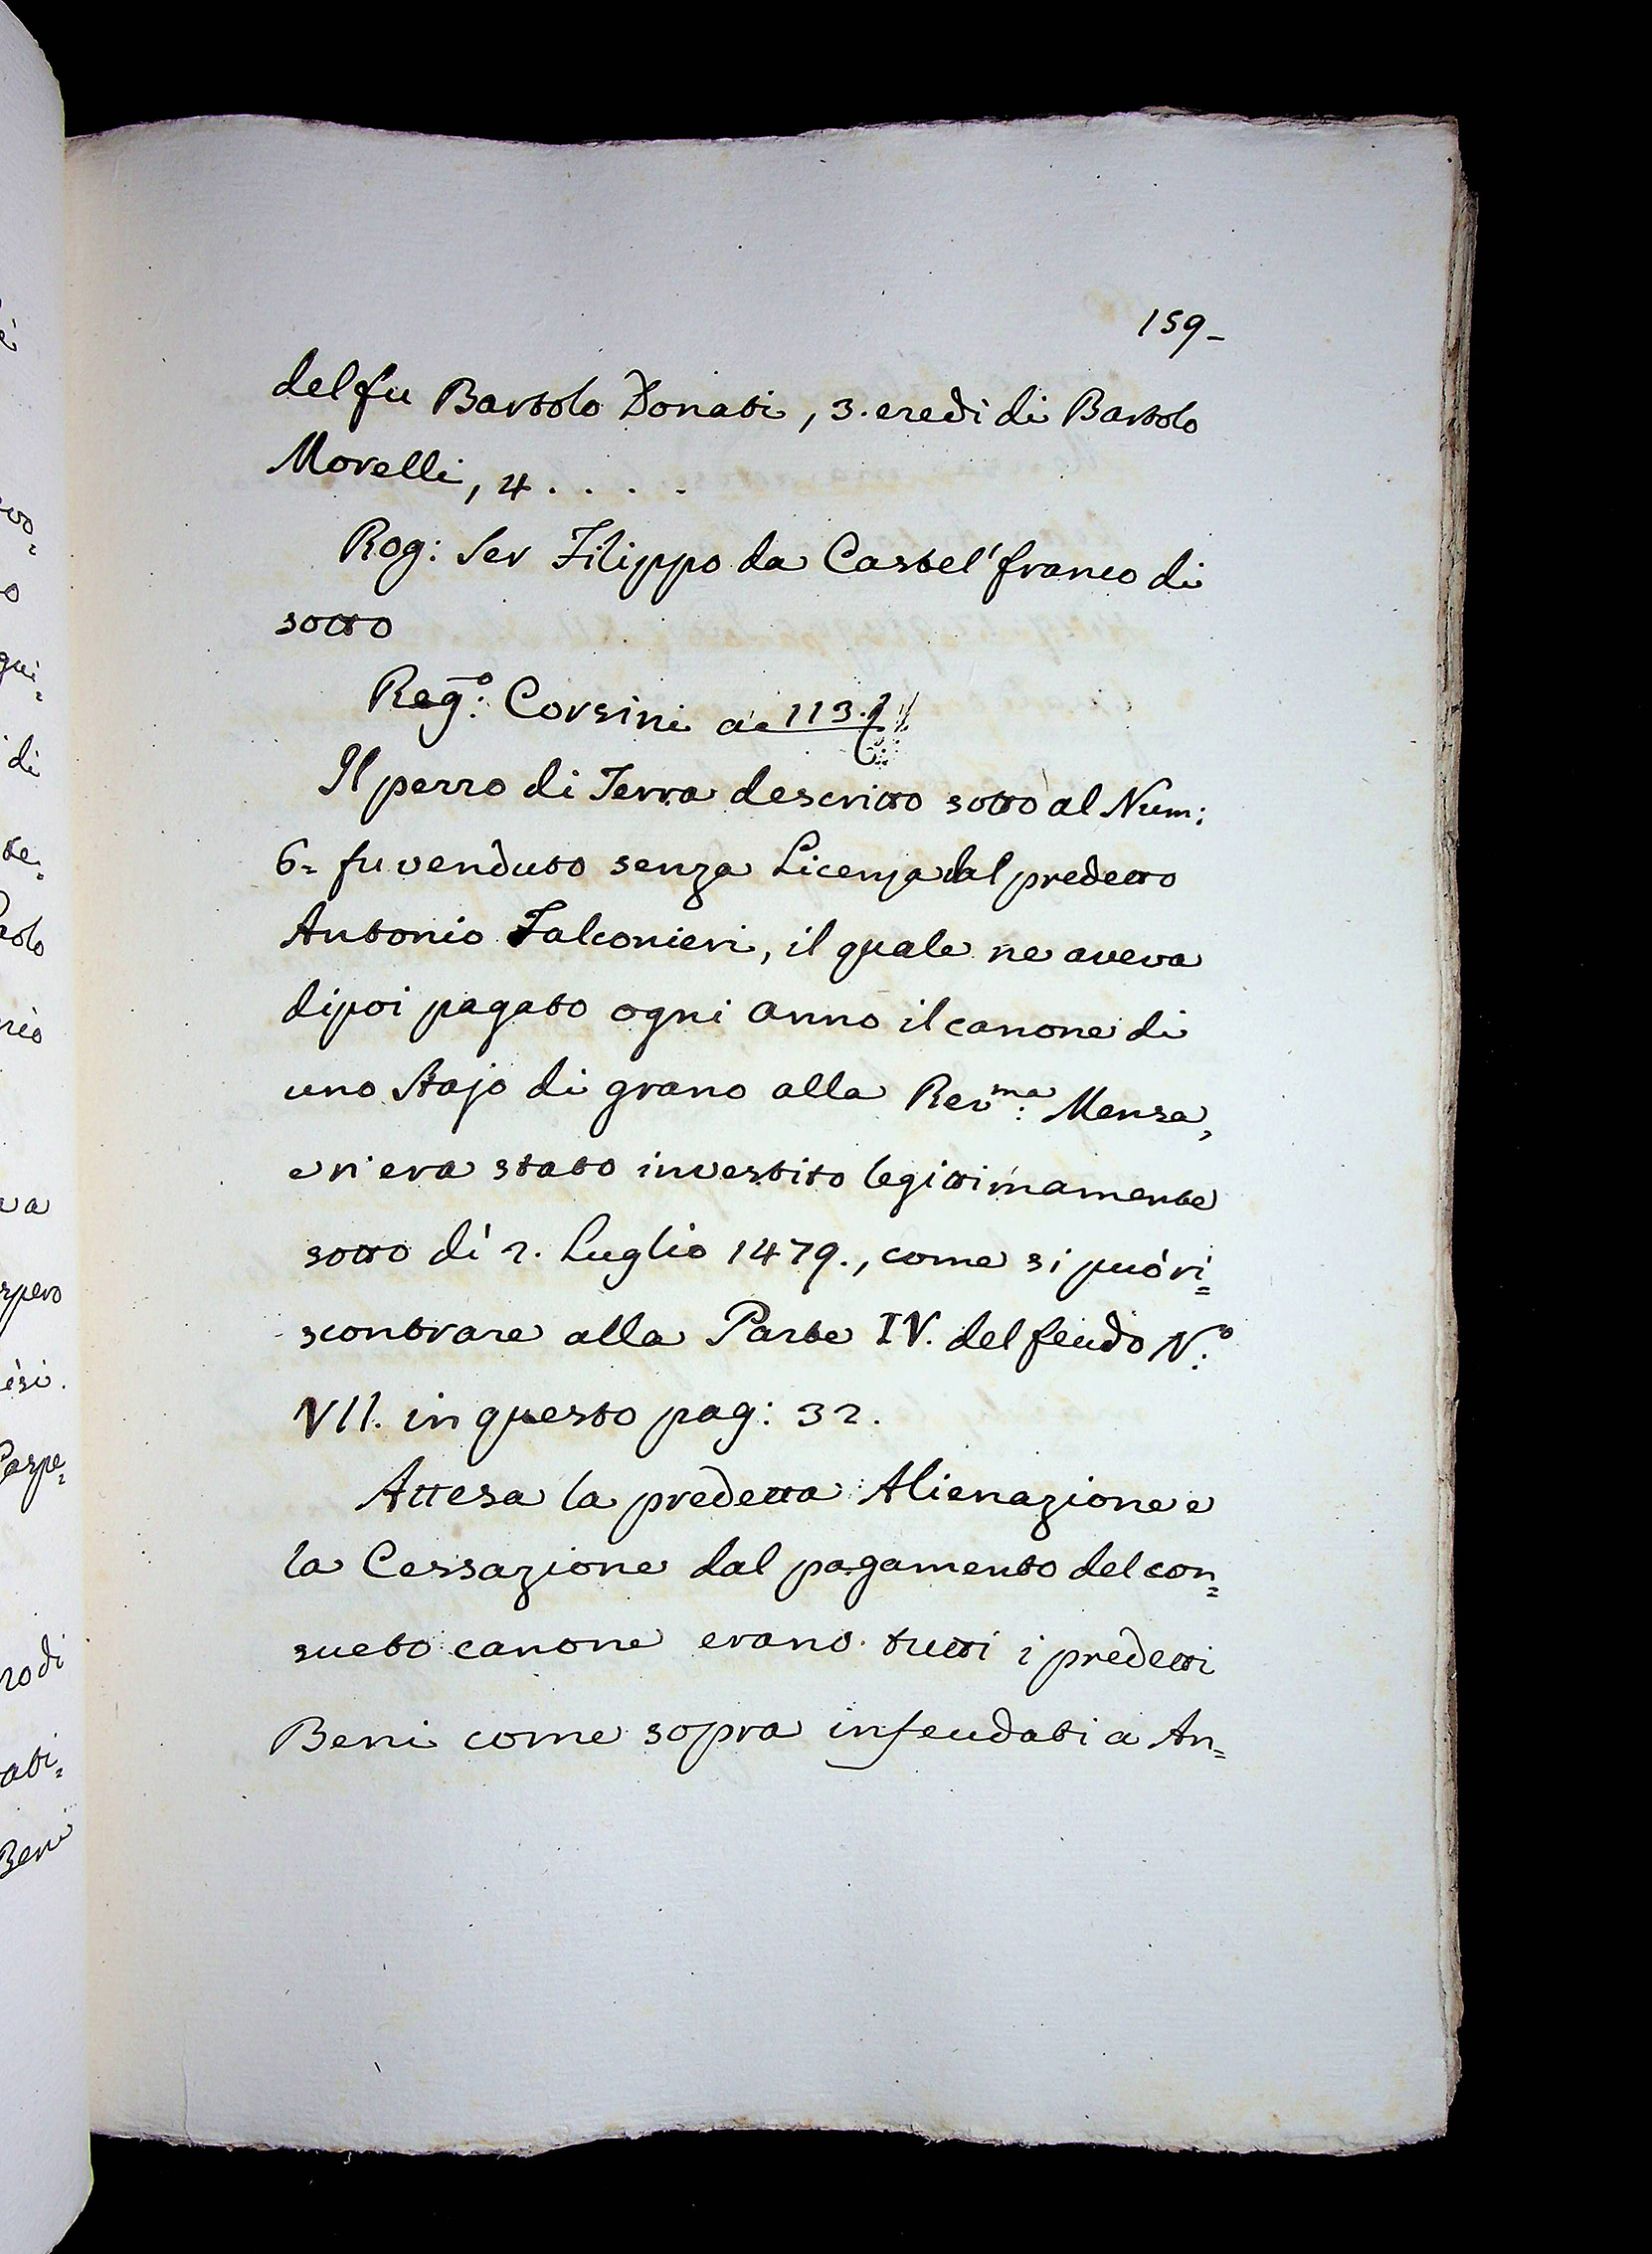 159-
del fu Bartolo Donati, 3. eredi di Bartolo
Morelli, 4 . . . .
Rog: Ser Filippo da Castel' franco di
sotto
Reg.º: Corsini a 113.
Il pezzo di Terra descritto sotto al Num:
6= fu venduto senza Licenza dal predetto
Antonio Falconieri, il quale ne aveva
dipoi pagato ogni anno il canone di
uno Stajo di grano alla Rev:ma Mensa,
e n'era stato investito legittimamente
sotto dì 2. Luglio 1479., come si può ri=
scontrare alla Parte IV. del feudo N:º
VII. in questo pag: 32.
Attesa la predetta Alienazione e
la Cessazione dal pagamento del con=
sueto canone erano tutti i predetti
Beni come sopra infeudati a An=